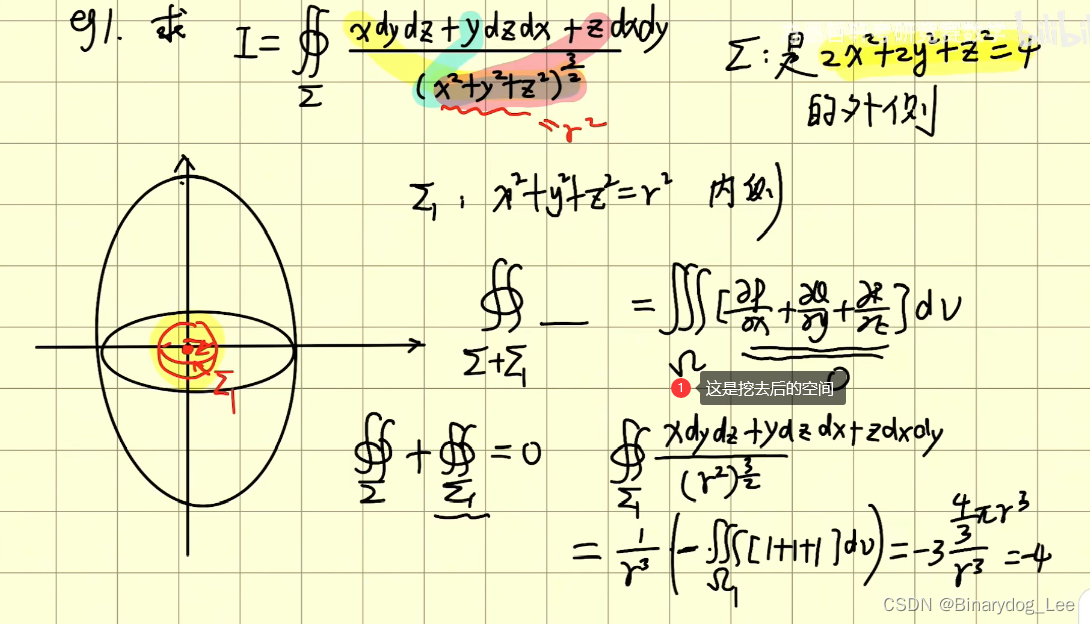 eg1. 求 I = ∯_Σ (xdydz + ydzdx + zdxdy) / (x²+y²+z²)^(3/2) Σ: 是 2x²+2y²+z²=4
= r²
的外侧
Σ₁: x²+y²+z²=r² 内侧
∯_(Σ+Σ₁) __ = ∭_Ω [∂P/∂x + ∂Q/∂y + ∂R/∂z] dv
0
1 这是挖去后的空间
Σ₁
∯_Σ + ∯_Σ₁ = 0 ∯_Σ₁ (xdydz + ydzdx + zdxdy) / (r²)^(3/2)
= 1/r³ (-∭_Ω₁ [1+1+1] dv) = -3 (4/3 πr³)/r³ = -4
CSDN @Binarydog_Lee